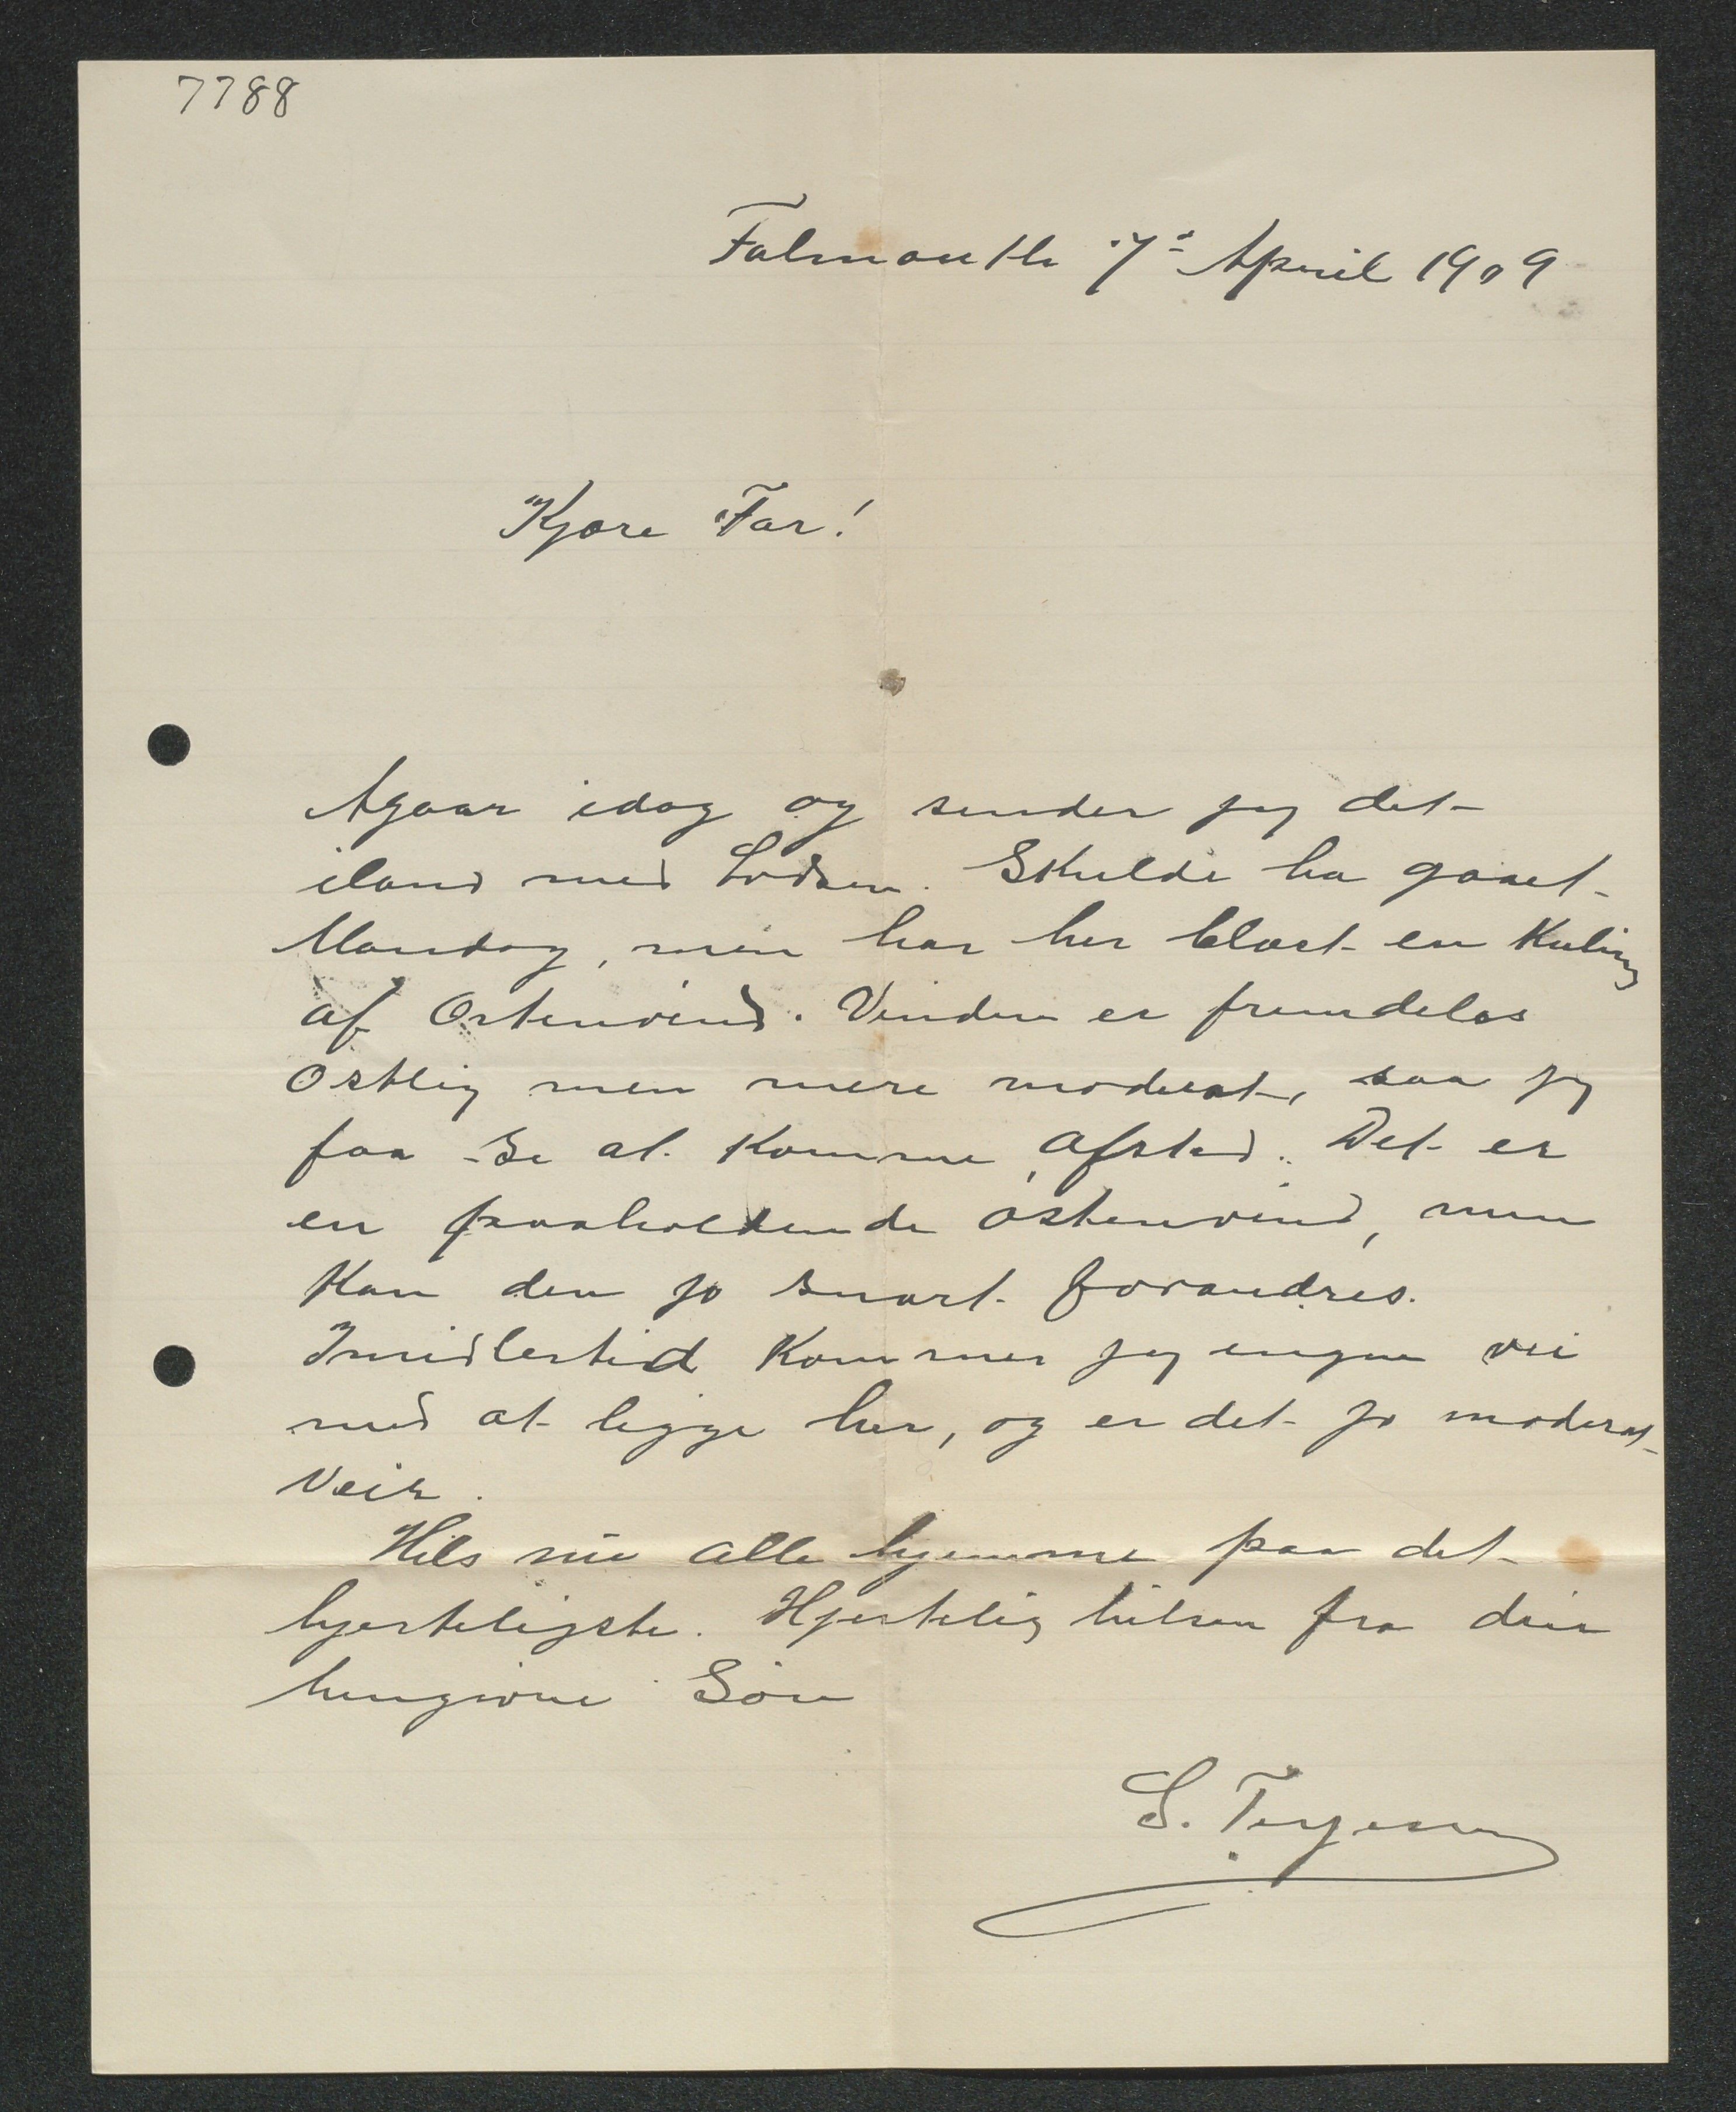 7788
Falmouth 7de April 1909
Kjære Far!
Afgaar idag og sender jeg det
iland med Lodsen. Skulde ha gaaet
Mandag, men har her blæst en Kuling
af Østenvind. Vinden er fremdeles
Østlig men mere moderat, saa jeg
faa se at komme afsted. Det er
en paaholdende østenvind, men
kan den jo snart forandres.
Imidlertid kommer jeg ingen vei
med at ligge her, og er det jo moderat
veir.
Hils nu alle hjemme paa det
hjerteligste. Hjertelig hilsen fra din
hengivne Søn
S. Terjesen